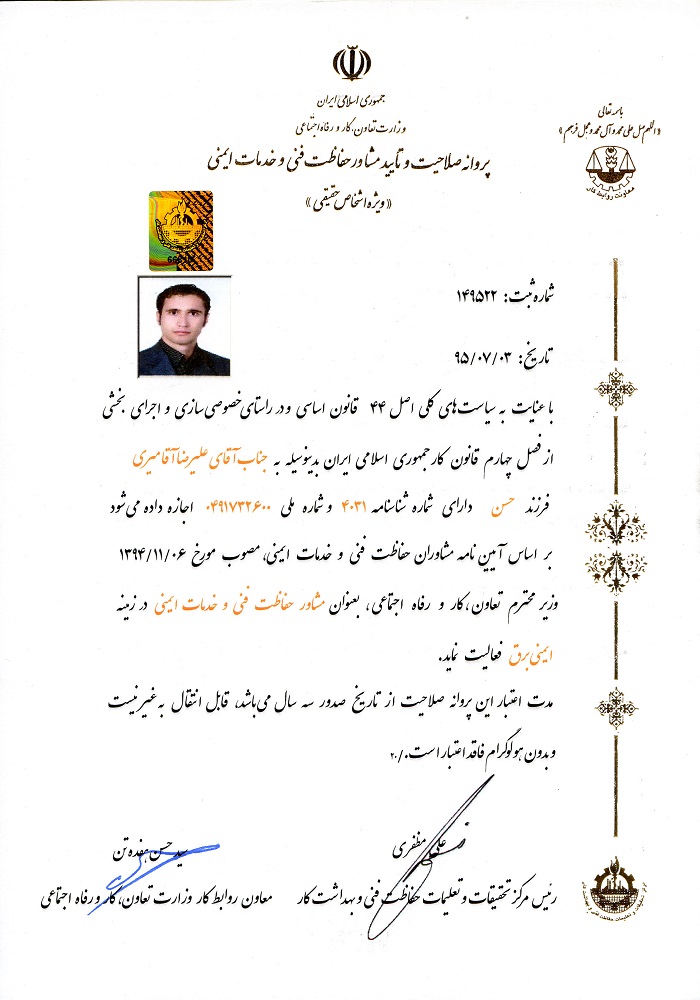 باسمه تعالی
«اللهم صل علی محمد و آل محمد و عجل فرجهم»
معاونت روابط کار
جمهوری اسلامی ایران
وزارت تعاون، کار و رفاه اجتماعی
پروانه صلاحیت و تأیید مشاور حفاظت فنی و خدمات ایمنی
«ویژه اشخاص حقیقی»
شماره ثبت: ۱۴۹۵۲۲
تاریخ: ۹۵/۰۷/۰۳
با عنایت به سیاست‌های کلی اصل ۴۴ قانون اساسی و در راستای خصوصی‌سازی و اجرای بخشی
از فصل چهارم قانون کار جمهوری اسلامی ایران بدینوسیله به جناب آقای علیرضا آقامیری
فرزند حسن دارای شماره شناسنامه ۴۰۳۱ و شماره ملی ۰۴۹۱۷۳۲۶۰۰ اجازه داده می‌شود
بر اساس آیین نامه مشاوران حفاظت فنی و خدمات ایمنی، مصوب مورخ ۱۳۹۴/۱۱/۰۶
وزیر محترم تعاون، کار و رفاه اجتماعی، بعنوان مشاور حفاظت فنی و خدمات ایمنی در زمینه
ایمنی برق فعالیت نماید.
مدت اعتبار این پروانه صلاحیت از تاریخ صدور سه سال می‌باشد، قابل انتقال به غیر نیست
و بدون هولوگرام فاقد اعتبار است./۲۰
علی مظفری
رئیس مرکز تحقیقات و تعلیمات حفاظت فنی و بهداشت کار
سید حسن هفده تن
معاون روابط کار وزارت تعاون، کار و رفاه اجتماعی